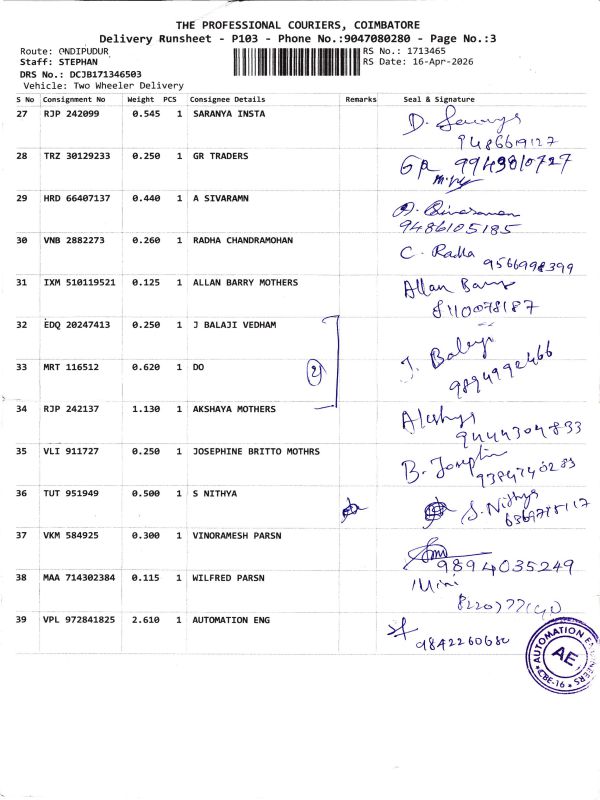 THE PROFESSIONAL COURIERS, COIMBATORE
Delivery Runsheet - P103 - Phone No.:9047080280 - Page No.:3
Route: ONDIPUDUR
RS No.: 1713465
Staff: STEPHAN
RS Date: 16-Apr-2026
DRS No.: DCJB171346503
Vehicle: Two Wheeler Delivery
S No Consignment No Weight PCS Consignee Details Remarks Seal & Signature
27 RJP 242099 0.545 1 SARANYA INSTA D.
9486619127
28 TRZ 30129233 0.250 1 GR TRADERS GR 9943810727
29 HRD 66407137 0.440 1 A SIVARAMN A. Sivaraman
9486105185
30 VNB 2882273 0.260 1 RADHA CHANDRAMOHAN C. Radha 9566998399
31 IXM 510119521 0.125 1 ALLAN BARRY MOTHERS Allan Barry
8110078187
32 EDQ 20247413 0.250 1 J BALAJI VEDHAM
33 MRT 116512 0.620 1 DO 2 J. Balaji
9894992466
34 RJP 242137 1.130 1 AKSHAYA MOTHERS Akshaya
9444304833
35 VLI 911727 0.250 1 JOSEPHINE BRITTO MOTHRS B. Josephin
9384740283
36 TUT 951949 0.500 1 S NITHYA S. Nithya
37 VKM 584925 0.300 1 VINORAMESH PARSN
9894035249
38 MAA 714302384 0.115 1 WILFRED PARSN Mini
39 VPL 972841825 2.610 1 AUTOMATION ENG
9842260680
AUTOMATION ENGINEERS
AE
CBE-16